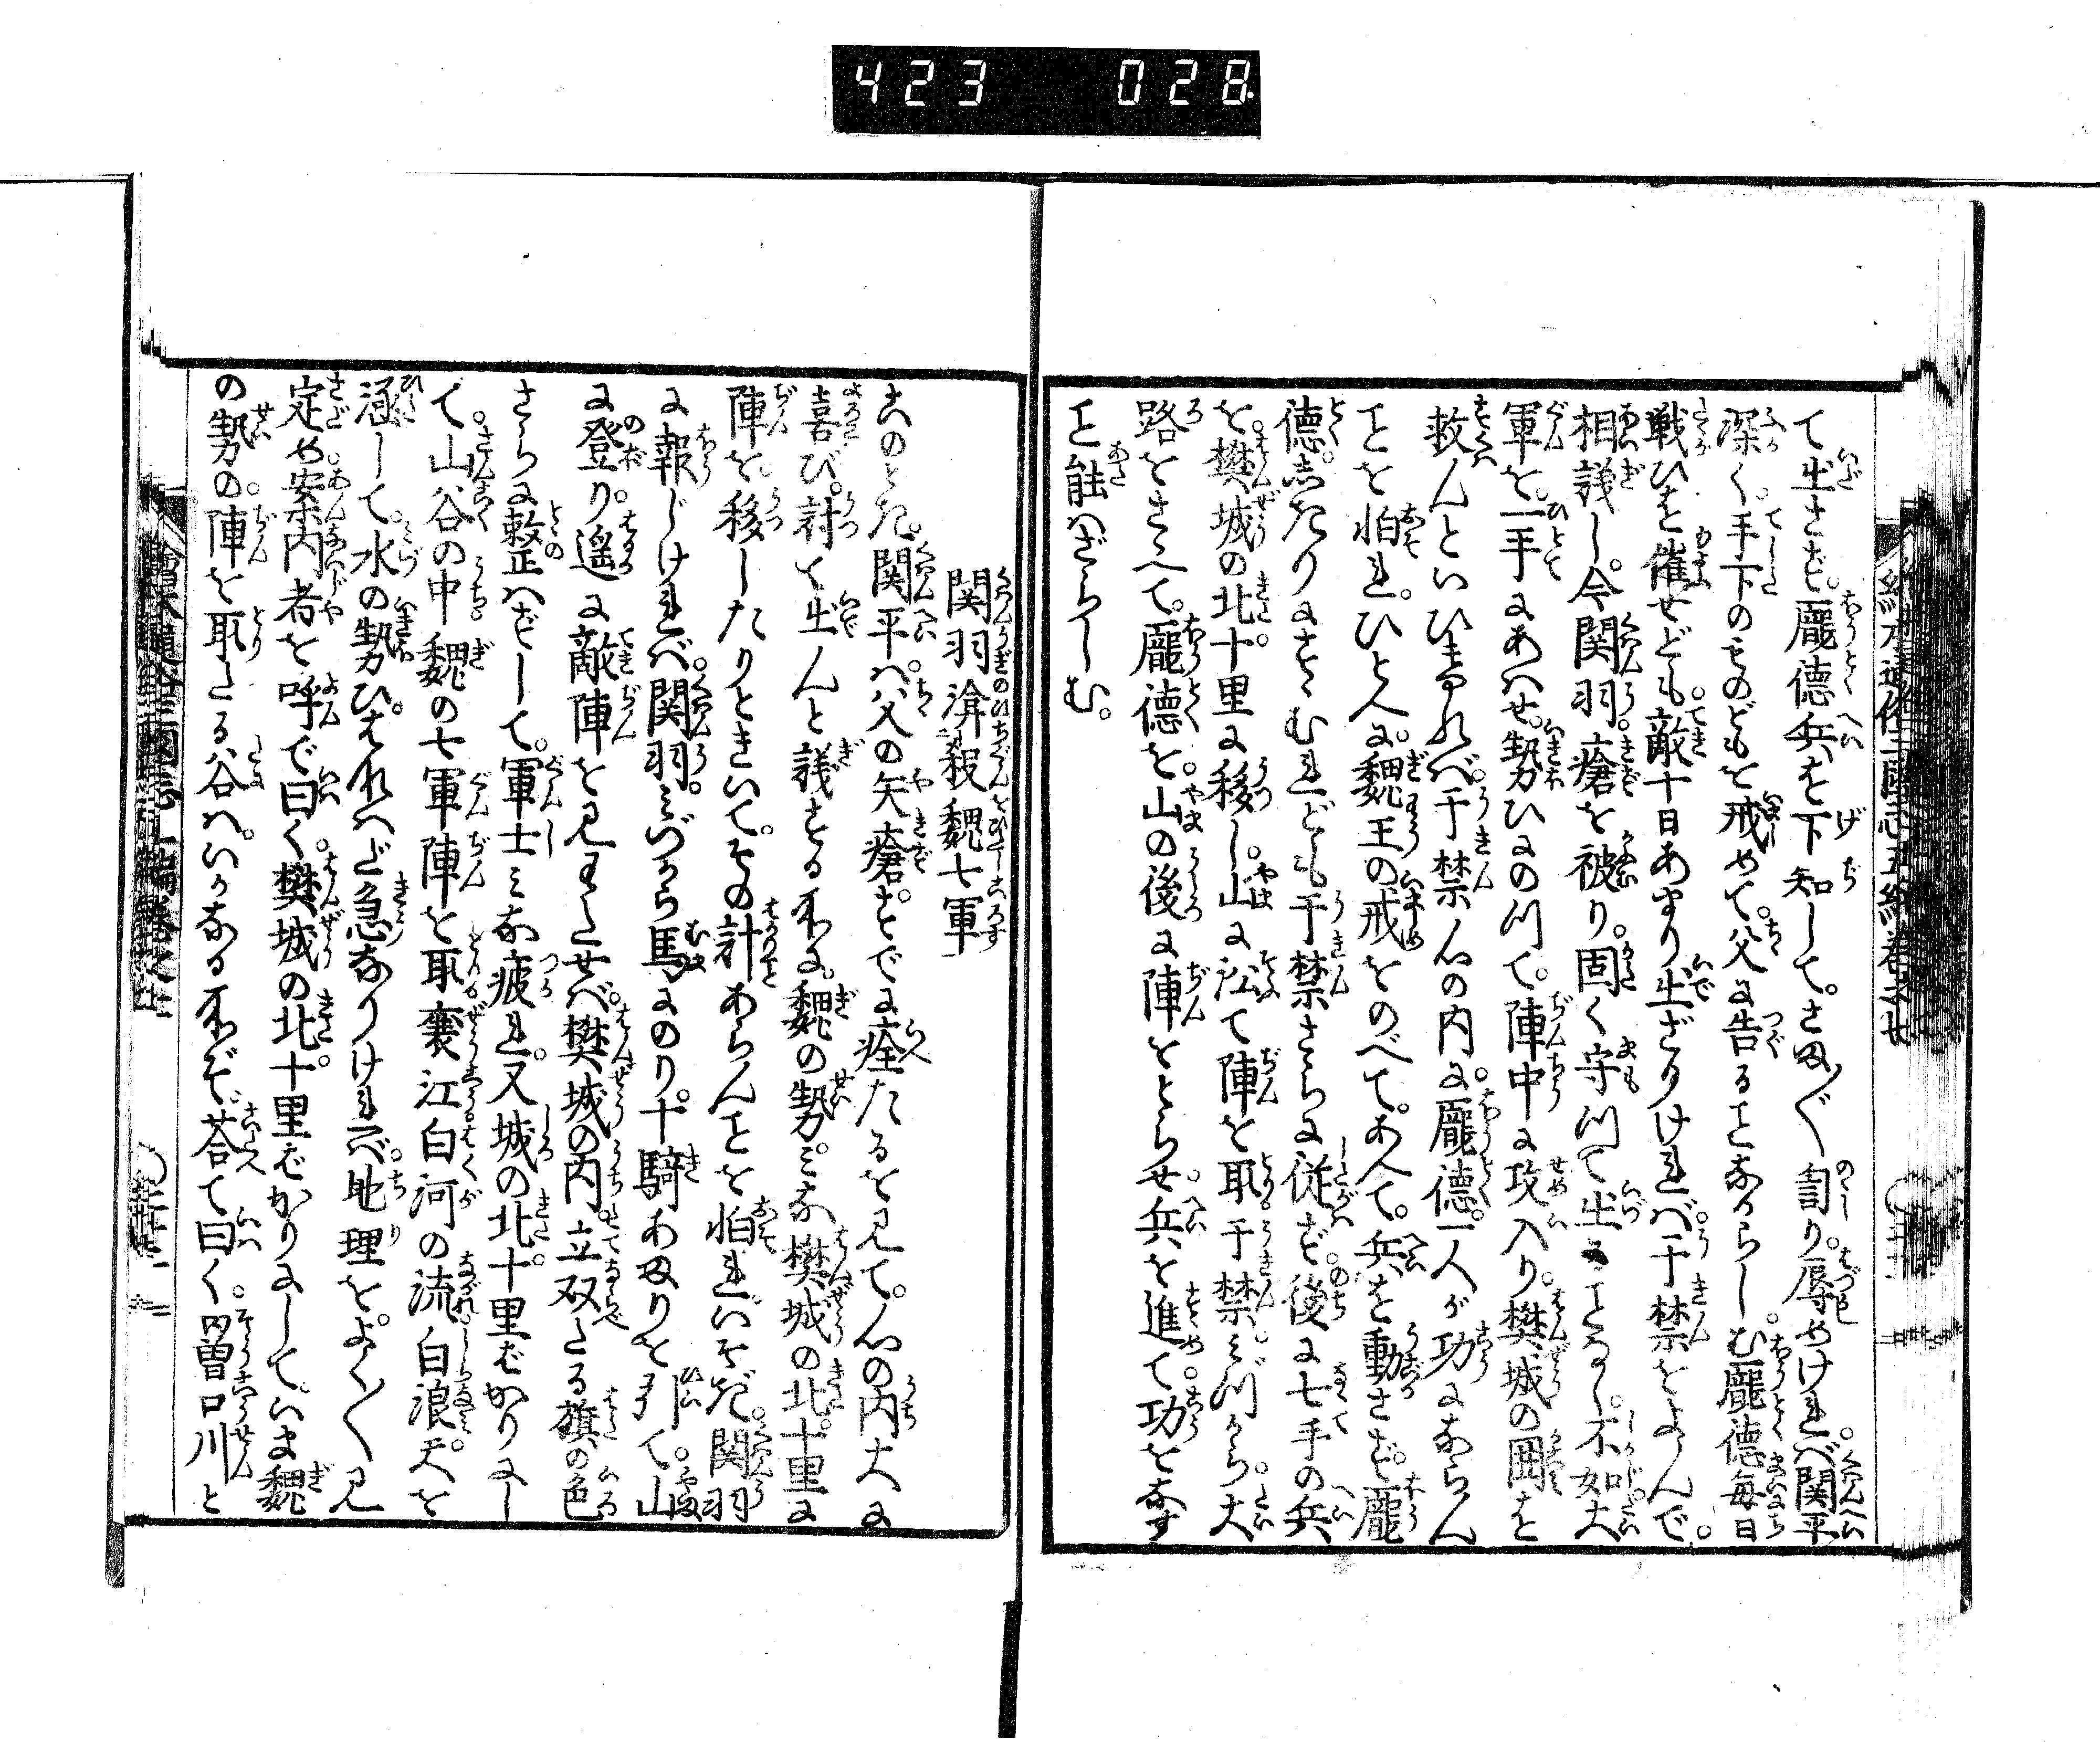 423 028
て出さず。龐徳兵を下知して。さま〲罵り。辱めければ。関平
深く。手下のものどもを戒めて。父に告ることなからしむ。龐徳毎日
戦ひを催せども。敵十日あまり出ざりければ。于禁をよんで。
相議し。今関羽。瘡を被り。固く守つて出ることなし。不如大
軍を。一手にあはせ。勢ひにのつて。陣中に攻入り。樊城の囲を
救んといひければ。于禁心の内に。龐徳一人が功にならん
ことを怕れ。ひとへに。魏王の戒をのべて。あへて。兵を動さず。龐
徳。しきりにすゝむれども于禁さらに従ず。後に七手の兵
を。樊城の北。十里に移し。山に沿て陣を取。于禁。みづから。大
路をさゝへて。龐徳を。山の後に陣をとらせ。兵を進て。功をなす
こと能はざらしむ。
関羽渰殺魏七軍
このとき。関平は。父の矢瘡。すでに痊たるを見て。心の内大に
喜び。討て出んと議する所に。魏の勢。みな樊城の北。十里に
陣を。移したりときいて。その計あらんことを怕れ。いそぎ。関羽
に報じければ。関羽。みづから馬にのり。十騎あまりを引て。山
に登り。遥に敵陣を見わたせば。樊城の内。立双たる旗の色
さらに整はずして。軍士みな疲れ。又城の北。十里ばかりにし
て。山谷の中魏の七軍陣を取襄江白河の流。白浪。天を
浸して。水の勢ひ。はなはだ急なりければ。地理を。よく〱見
定め。案内者を呼で曰く。樊城の北。十里ばかりにして。いま魏
の勢の。陣を取たる谷は。いかなる所ぞ。答て曰く。罾口川と